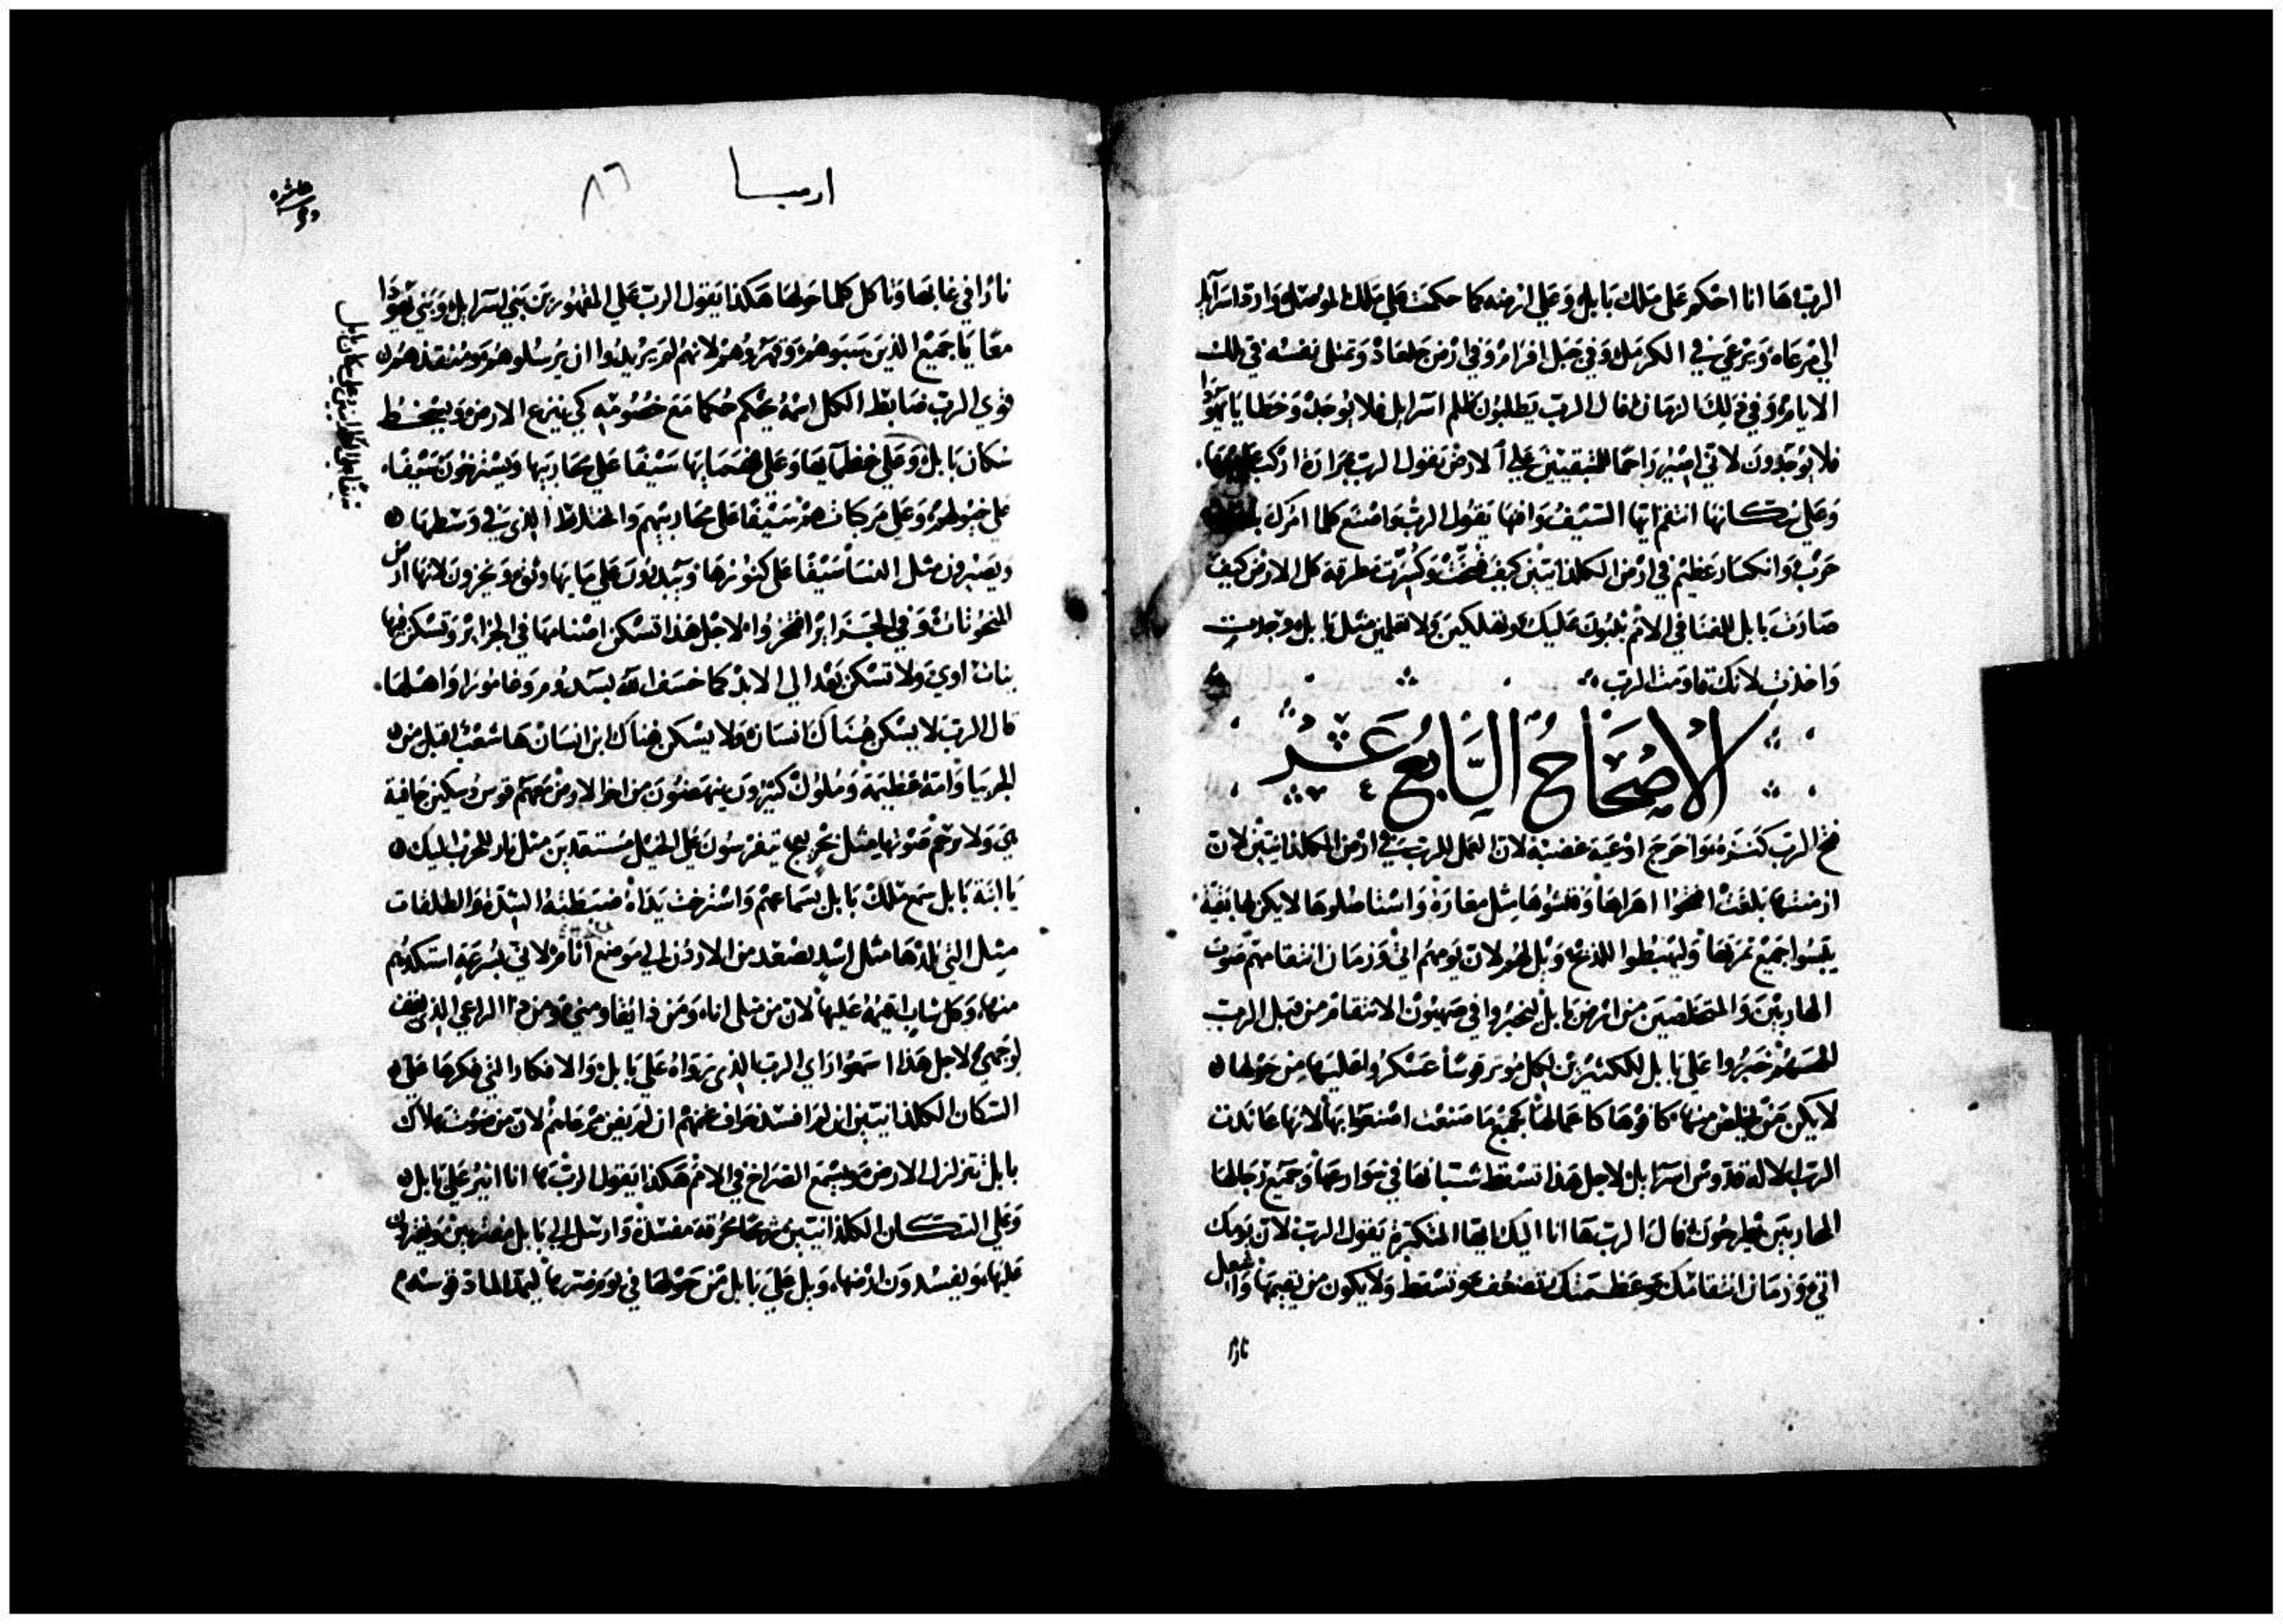 الرب هَا انا احكم على ملك بابل وَعلي ارضه كما حكمت علي ملك الموصل وَارد اسرآيل
الي مرعَاه وَيرعَي في الكرمل وَفي جبل افرام وَفي ارض جلعاد وَتمتلي نفسه في تلك
الايام وَفي ذلك الزمان قال الرب يطلبون ظلم اسرايل فلا يوجد وَخطايا يهوذا
فلا يوجدون لاني اصير راحمًا للمتبقيين علي الارض يقول الرب بمرارة اركب عليها
وَعلي سكانها انتقم ايها السيف وَافنها يقول الرب وَاصنع كلما امرك به
حرب وَانكسار عظيم في ارض الكلدانيين كيف وَكسرت مطرقة كل الارض كيف
صارت بابل للفنا في الامم يثبون عليك وتهلكين وَلا تعلمين مثل بابل وجدتِ
وَاخذتِ لانك قاومت الرب
الاصحاح السابع عشر
فتح الرب كنزه وَاخرج اوعية غضبه لان العمل للرب في ارض الكلدانيين لان
ازمنتها بلغت افتحوا اهراها وَفتشوها مثل مغارة وَاستاصلوها لا يكن لها بقية
يبسوا جميع ثمرتها وَليهبطوا للذبح وَيل لهم لان يومهم اتي وَزمان انتقامهم صوت
الهاربين وَالمتخلصين من ارض بابل ليخبروا في صهيون الانتقام من قبل الرب
الههم خبروا على بابل لكثيرين لكل موتر قوسًا عسكروا عليها من حولها
لا يكن من يخلص منها كافوها كاعمالها كجميع ما صنعت اصنعوا بها لانها عاندت
الرب الاله قدوس اسرايل لاجل هذا تسقط شبانها في شوارعها وَجميع رجالها
المحاربين يطرحون قال الرب هَا انا اليك ايتها المتكبرة يقول الرب لان يومك
اتي وَزمان انتقامك وعظمتك تضعف وتسقط وَلا يكون من يقيمها وَاشعل
نارًا
ارميا
٨٦
نارًا في غابها وَتاكل كلما حولها هكذا يقول الرب علي المقهورين بني اسرايل وَبني يهوذا
معًا يا جميع الذين سبوهم وَقهروهم لانهم لم يريدوا ان يرسلوهم ومنقذهم
قوي الرب ضابط الكل اسمه يحكم حكمًا مع خصومه كي ينزع الارض وَيسخط
سكان بابل وَعلي عظمايها وَعلي فهمايها سيفًا علي محاربيها وَيسترخون سيفًا
علي خيولهم وَعلي مركباتهم سيفًا علي محاربيهم وَالخلاط الذي في وسطها
ويصيرون مثل النسا سيفًا على كنوزها وَيبددون علي مياهها وَيخزون لانها ارض
المنحوتات وَفي الجزاير افتخروا لاجل هذا تسكن اصنامها في الجزاير وَتسكن فيها
بنات اوي وَلا تسكن بعد الي الابد كما خسف الله بسدوم وعامورا وَاهلها
قال الرب لا يسكن هناك انسان وَلا يسكن هناك ابن انسان ها شعب اقبل من
الجربيا وَامة عظيمة وَملوك كثيرون ينهضون من اخر الارض معهم قوس وسكين جافية
هي وَلا ترحم صوتها مثل بحر يعج يتفرسون علي الخيل مستعدين مثل نار للحرب اليك
يا ابنة بابل سمع ملك بابل بسماعهم وَاسترخت يداه ضبطته الشدة وَالطلقات
مثل التي تلدها مثل اسد يصعد من الاردن الي موضع اتام لاني بسرعة استكدهم
منها وَكل شاب اقيمه عليها لان من مثلي انا وَمن ذا يقاومني وَمن هذا الراعي الذي يقف
لوجهي لاجل هذا اسمعوا راي الرب الذي رواه علي بابل وَالافكار التي فكرها علي
السكان الكلدانيين ان لم افسد خراف غنمهم ان لم يفن مرعاهم لان من صوت هلاك
بابل تتزلزل الارض وَيسمع الصراخ في الامم هكذا يقول الرب ها انا اثير علي بابل
وَعلي السكان الكلدانيين ريحًا محرقة مفسدة وَارسل الي بابل مفترين ويفترون
عليها ويفسدون ارضها وَيل علي بابل من حولها في يوم ضرها ليمد الماد قوسه